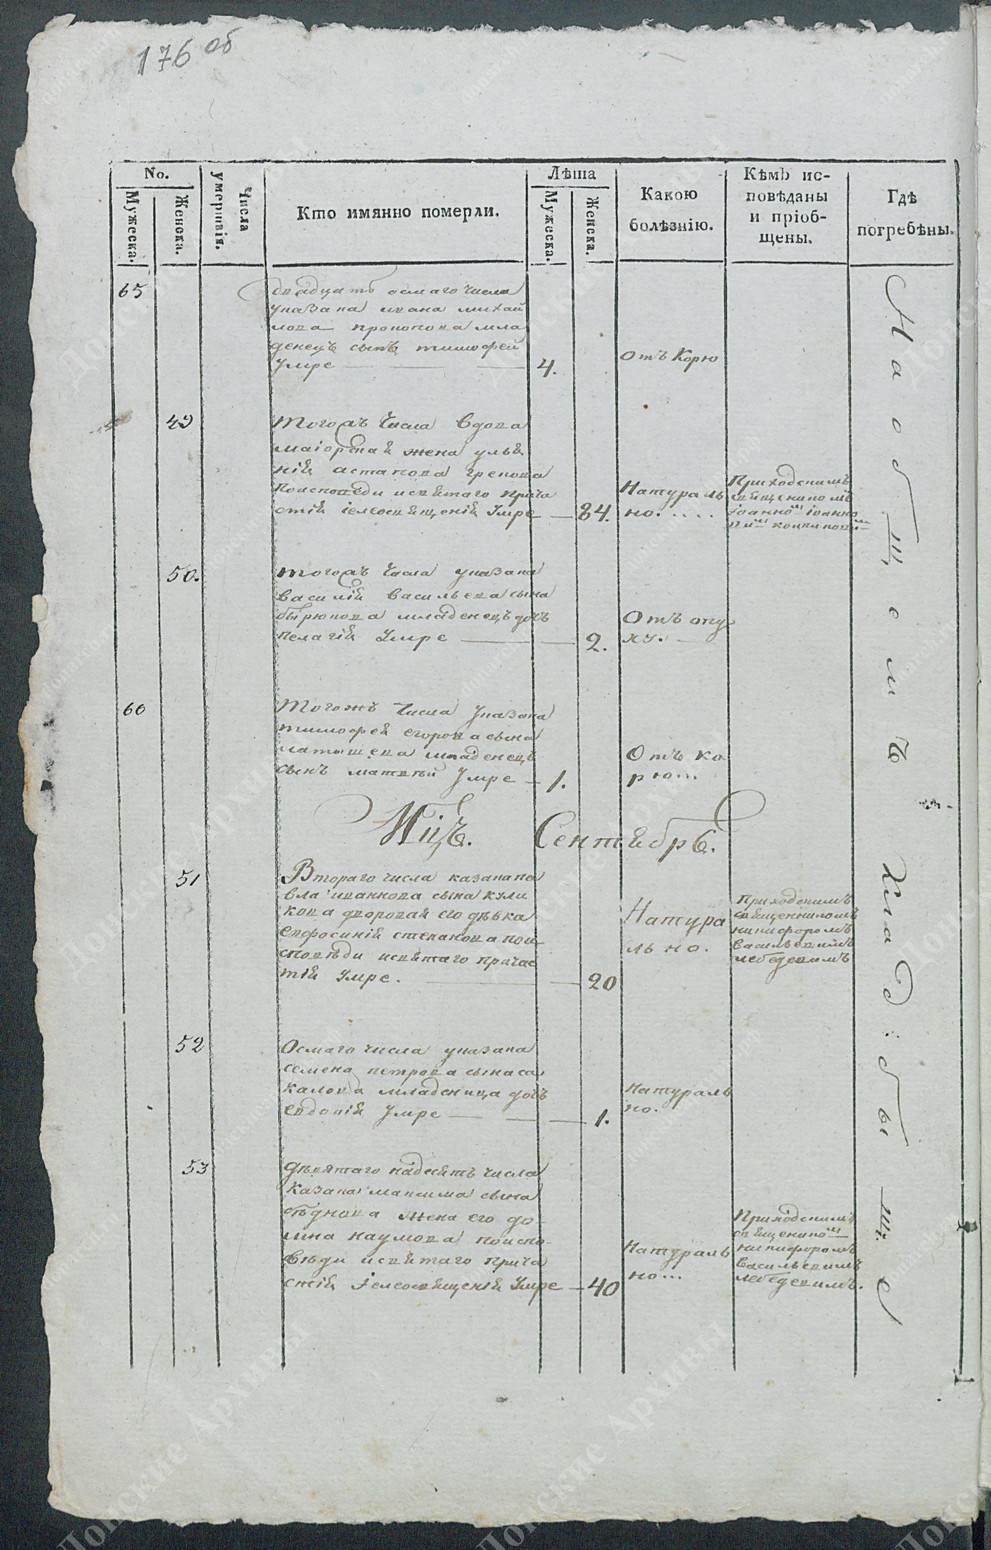 176 об
No.
Мужеска.
Женска.
Числа умерта́я.
Кто имянно померли.
Лѣта
Мужеска.
Женска.
Какою болѣзнію.
Кѣмъ исповѣданы и пріобщены.
Гдѣ погребѣны.
65
двадцать осмаго числа
указака ивана михай
лова пронопова мла
денецъ сынъ тимофей
Умре
4.
Отъ Корю
49
тогожъ Числа вдова
маіорская жена улья
нія астапова грекова
поисповеди исвятаго прича
стія іелеосвященія Умре
84.
Натураль
но....
Приходскимъ
священникомъ
іоанномъ іоанно
50.
тогожъ Числа указака
василія васильева сына
бирюкова младенецъ дочь
пелагія Умре
2.
Отъ опу
ху.
66
Тогожъ Числа Указака
тимофея егорова сына
латышева младенецъ
сынъ матвѣй Умре
1.
Отъ ко
рю...
Мцъ. Сентябрь.
51
Втораго числа казака па
вла иванова сына кули
кова дворовая его дѣвка
евфросинія степанова пои
сповѣди исвятаго причас
тія Умре.
20
Натура
льно.
Приходскимъ
священникомъ
никифоромъ
васильевымъ
лебедевымъ
52
Осмаго числа указака
семена петрова сына са
калова младеница дочь
евдокія Умре
1.
натураль
но.
53
девятаго надесять числа
Казака максима сына
сѣднова жена его до
мна наумова поиспо
вѣди исвятаго прича
стія іелеосвященія Умре
40
Натураль
но...
Приходскимъ
священникомъ
никифоромъ
васильевымъ
лебедевымъ.
На общемъ кладъбыще